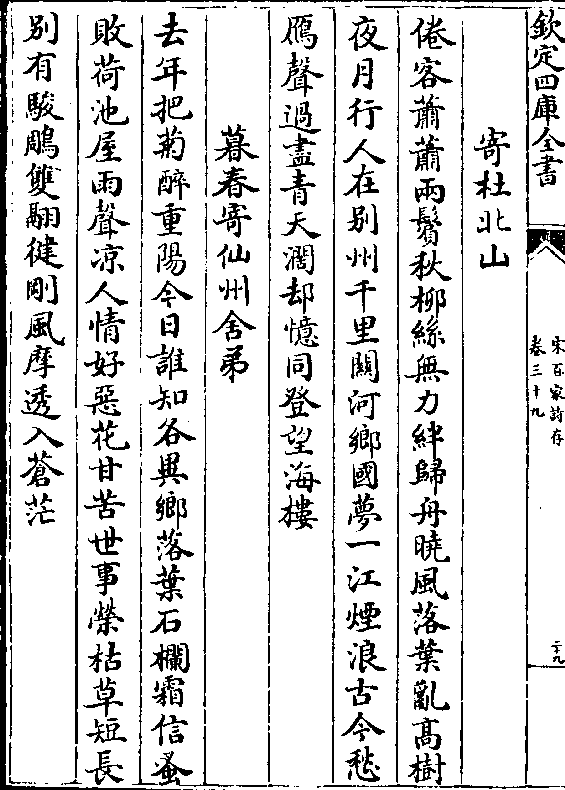 欽定四庫全書
宋百家詩存
卷三十九
二十九
寄杜北山
倦客蕭蕭兩鬢秋柳絲無力絆歸舟曉風落葉亂髙樹
夜月行人在别州千里闗河鄉國夢一江煙浪古今愁
鴈聲過盡青天濶却憶同登望海樓
暮春寄仙州舍弟
去年把菊醉重陽今日誰知各異鄉落葉石欄霜信蚤
敗荷池屋雨聲凉人情好惡花甘苦世事榮枯草短長
别有駿鵰雙翮健剛風摩透入蒼茫